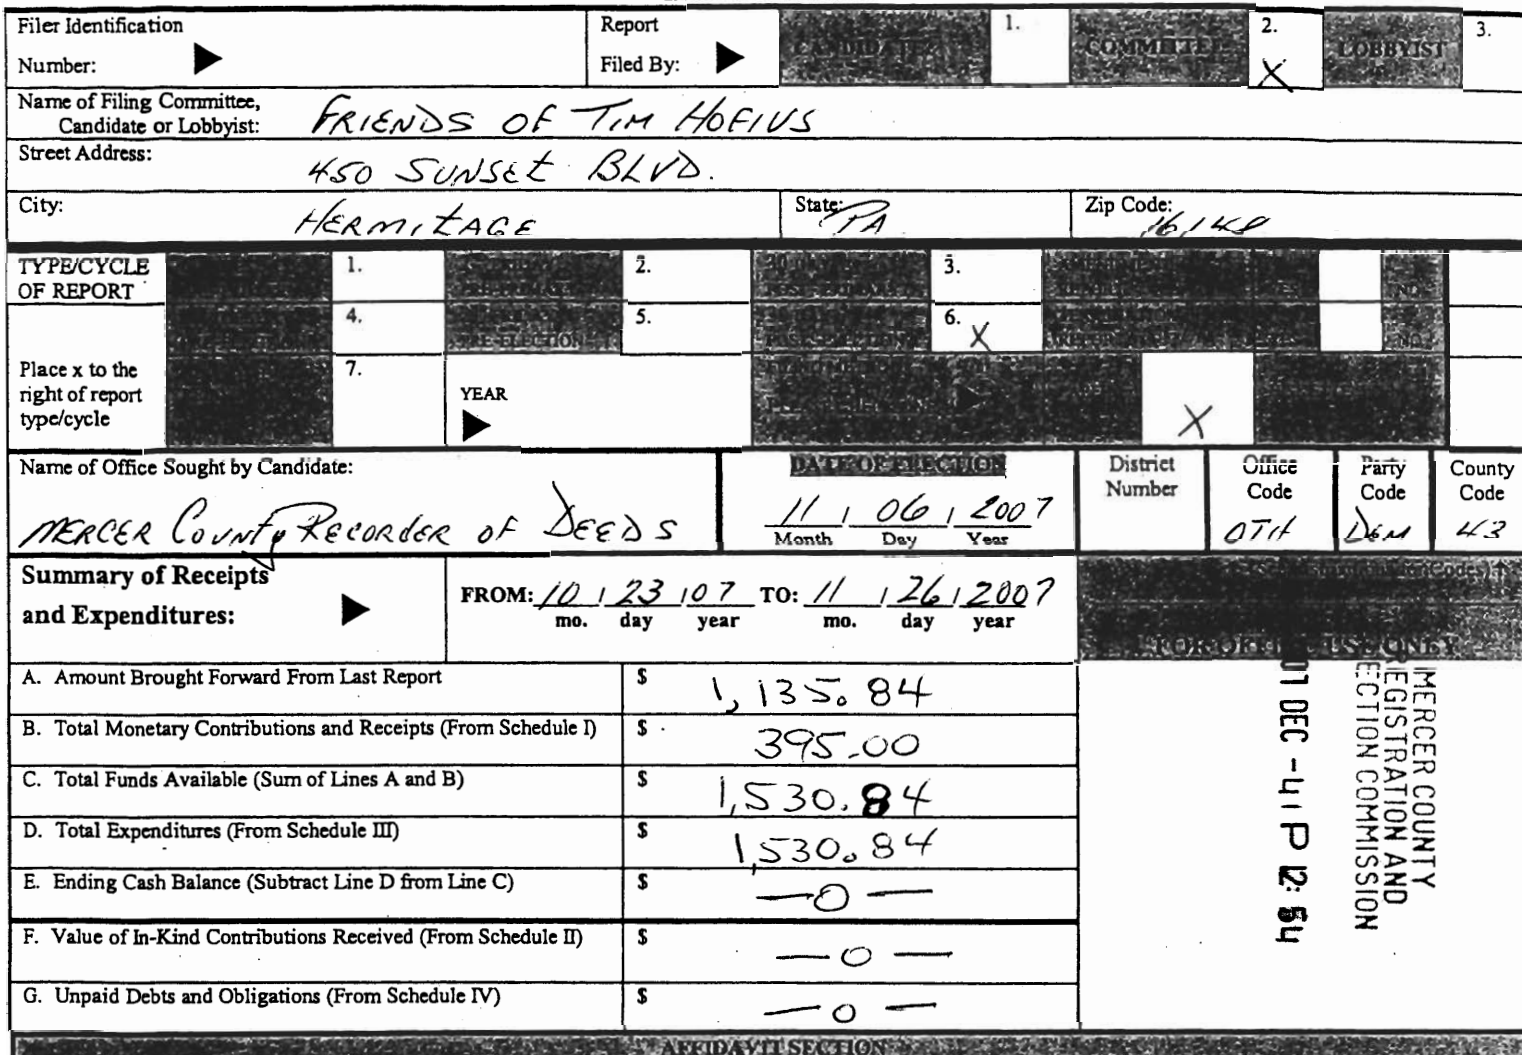 Filer Identification
Number:
Report
Filed By:
CANDIDATE
1.
COMMITTEE
2.
X
LOBBYIST
3.
Name of Filing Committee,
Candidate or Lobbyist:
FRIENDS OF TIM HOFIUS
Street Address:
450 SUNSET BLVD.
City:
HERMITAGE
State:
PA
Zip Code:
16148
TYPE/CYCLE
OF REPORT
1.
2.
3.
NO
4.
PRE-ELECTION
5.
6.
X
NO
Place x to the
right of report
type/cycle
7.
YEAR
X
Name of Office Sought by Candidate:
MERCER COUNTY RECORDER OF DEEDS
DATE OF ELECTION
11 06 2007
Month Day Year
District
Number
Office
Code
OTH
Party
Code
DEM
County
Code
43
Summary of Receipts
and Expenditures:
FROM: 10 23 07 TO: 11 26 2007
mo. day year mo. day year
FOR OFFICE USE ONLY
A. Amount Brought Forward From Last Report
$ 1,135.84
B. Total Monetary Contributions and Receipts (From Schedule I)
$ 395.00
C. Total Funds Available (Sum of Lines A and B)
$ 1,530.84
D. Total Expenditures (From Schedule III)
$ 1,530.84
E. Ending Cash Balance (Subtract Line D from Line C)
$ —0—
F. Value of In-Kind Contributions Received (From Schedule II)
$ —0—
G. Unpaid Debts and Obligations (From Schedule IV)
$ —0—
MERCER COUNTY
EGISTRATION AND
ECTION COMMISSION
07 DEC -4 P 12:54
AFFIDAVIT SECTION